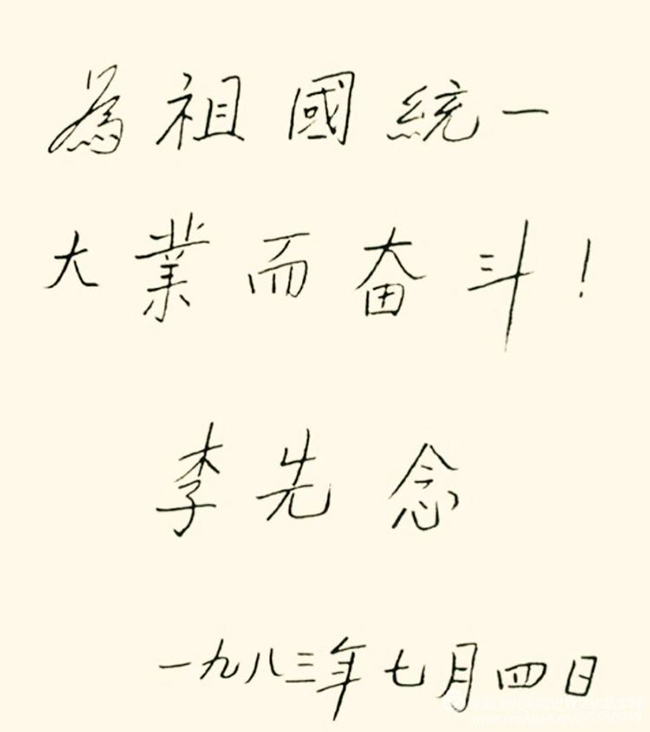 為祖國統一
大業而奋斗！
李先念
一九八三年七月四日